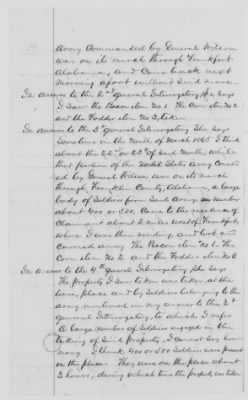 Army Commanded by General Wilson
was on its march through Frankfort
Alabama, and Came back next
morning
In answer to the 2nd general Interrogatory, She Says
I Saw the Bacon item No 1. The Corn item No 2
and the Fodder item No 3, taken
In answer to the 3rd general Interrogatory She Says
Sometime in the Month of March 1865 I think
about the 22nd or 23rd of Said Month while
this portion of the United States Army Comd
ed by General Wilson was on its march
through Franklin County, Alabama, a large
body of Soldiers from Said Army, in number
about 400 or 500, Came to the residence of
Claimant about 2 miles West of Frankfort,
where I was then residing, and took and
carried away The Bacon item No 1. The
Corn item No 2 and the Fodder item No 3
In answer to the 4th general Interrogatory, She Says
The property I Saw taken was taken at the
time, place and by Soldiers belonging to the
Army mentioned in my answer to the 3rd
general Interrogatory, to which I refer
A large number of Soldiers engaged in the
taking of Said property, I Cannot say how
many I think 400 or 500 Soldiers were present
on the place. They were on the place about
2 hours, during which time the property was taken